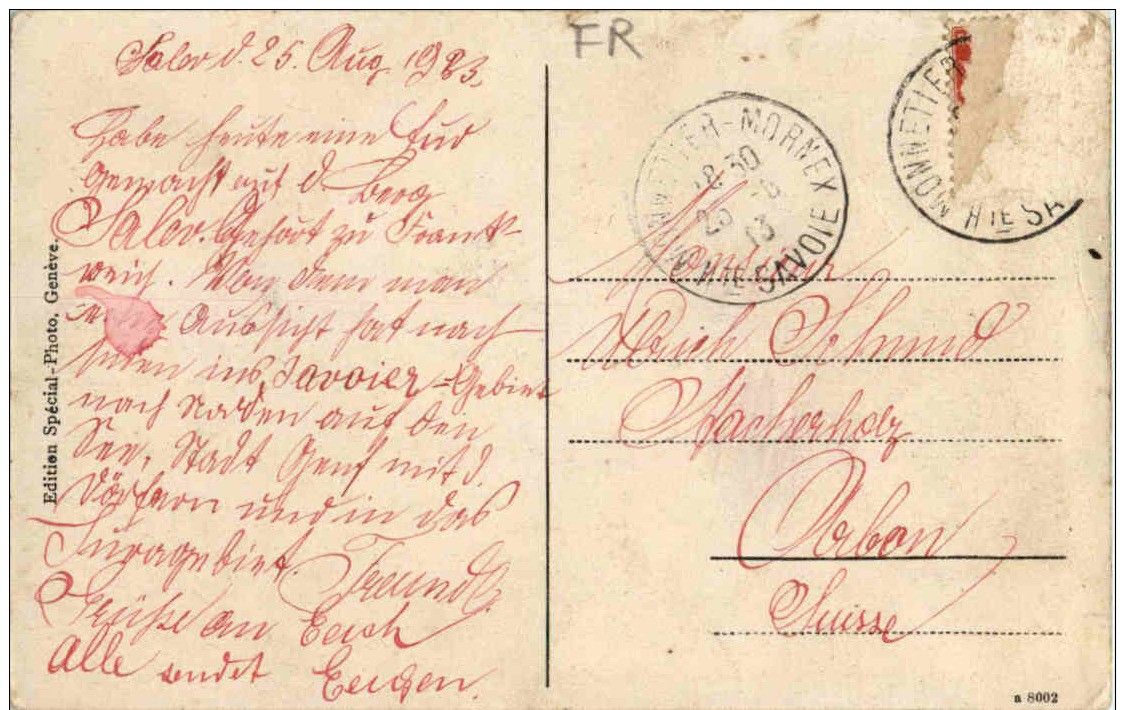 FR
Salev d. 25. Aug 1923.
Habe heute eine Tur
Gemacht auf d. Berg
Salev. Gehört zu Frank-
reich. Von dem man
Aussicht hat nach
ins Savoier=Gebiet
nach Norden auf den
See, Stadt Genf mit d.
Dörfern und in das
Juragebiet. Freundl.
Grüße an Euch
Alle sendet Eugen.
Edition Spécial-Photo, Genève.
MONNETIER-MORNEX
18 30
25 -8
13
HTE SAVOIE
MONNETIER
HTE SA
Monsieur
Schmid
Stacherholz
Arbon
Suisse
a 8002